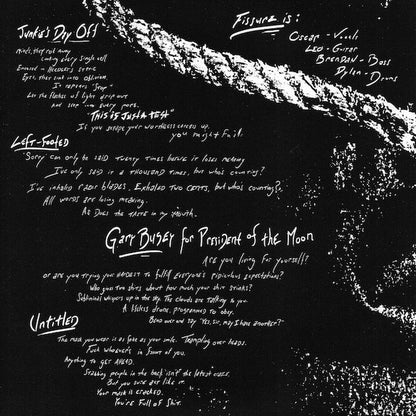 Junkie's Day Off
Minds, they rot away
Eyes, they sink into oblivion.
It repeats "Stop"
Let the flashes of light drip out
and seep into every pore.
"THIS IS JUST A TEST"
If you scrape your worthless excess up,
you might fail.
Left-Footed
"Sorry" can only be said twenty times before it loses meaning
I've only said it a thousand times, but who's counting?
I've inhaled razor blades. Exhaled two cents, but who's counting?
All words are losing meaning.
As does the taste in my mouth.
Gary Busey for President of the Moon
Are you living for yourself?
or are you trying your hardest to fulfill everyone's ridiculous expectations?
Who gives two shits about how much your shit stinks?
Subliminal whispers up in the sky. The clouds are talking to you.
A useless drone, programmed to obey.
Bend over and say "Yes, sir, may I have another?"
Untitled
The mask you wear is as fake as your smile. Trampling over heads.
Fuck whoever's in front of you.
Anything to get ahead.
Stabbing people in the back isn't the latest craze.
But you sure are like in.
Your mask is cracked.
You're full of shit.
Fissure is:
Oscar - Vocals
Leo - Guitar
Brendan - Bass
Dylan - Drums